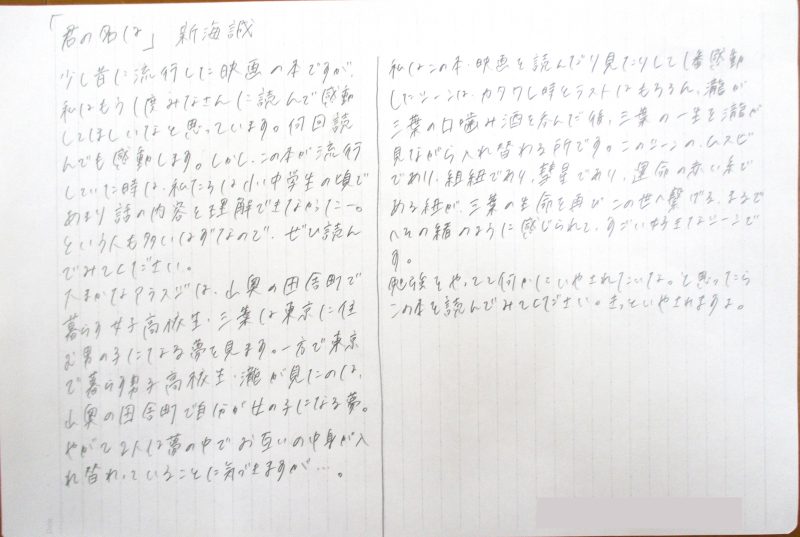 「君の名は」 新海誠
少し昔に流行した映画の本ですが、
私はもう1度みなさんに読んで感動
してほしいなと思っています。何回読
んでも感動します。しかし、この本が流行
していた時は、私たちは小、中学生の頃で
あまり話の内容を理解できなかったー。
という人も多いはずなので、ぜひ読ん
でみてください。
大まかなアラスジは、山奥の田舎町で
暮らす女子高校生・三葉は東京に住
む男の子になる夢を見ます。一方で東京
で暮らす男子高校生・瀧が見たのは、
山奥の田舎町で自分が女の子になる夢。
やがて2人は夢の中でお互いの中身が入
れ替わっていることに気づきますが…。
私はこの本・映画を読んだり見たりして1番感動
したシーンは、カタワレ時とラストはもちろん、瀧が
三葉の口噛み酒を呑んだ後、三葉の一生を瀧が
見ながら入れ替わる所です。このシーンの、ムスビ
であり、組紐であり、彗星であり、運命の赤い糸で
ある紐が、三葉の生命を再びこの世へ繋げる、まるで
へその緒のように感じられて、すごい好きなシーンで
す。
勉強をやってて何かにいやされたいな。と思ったら
この本を読んでみてください。きっといやされますよ。